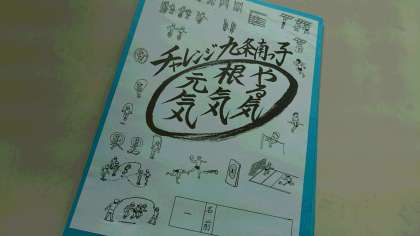 チャレンジ九条南っ子
やる気
根気
元気
一
名前